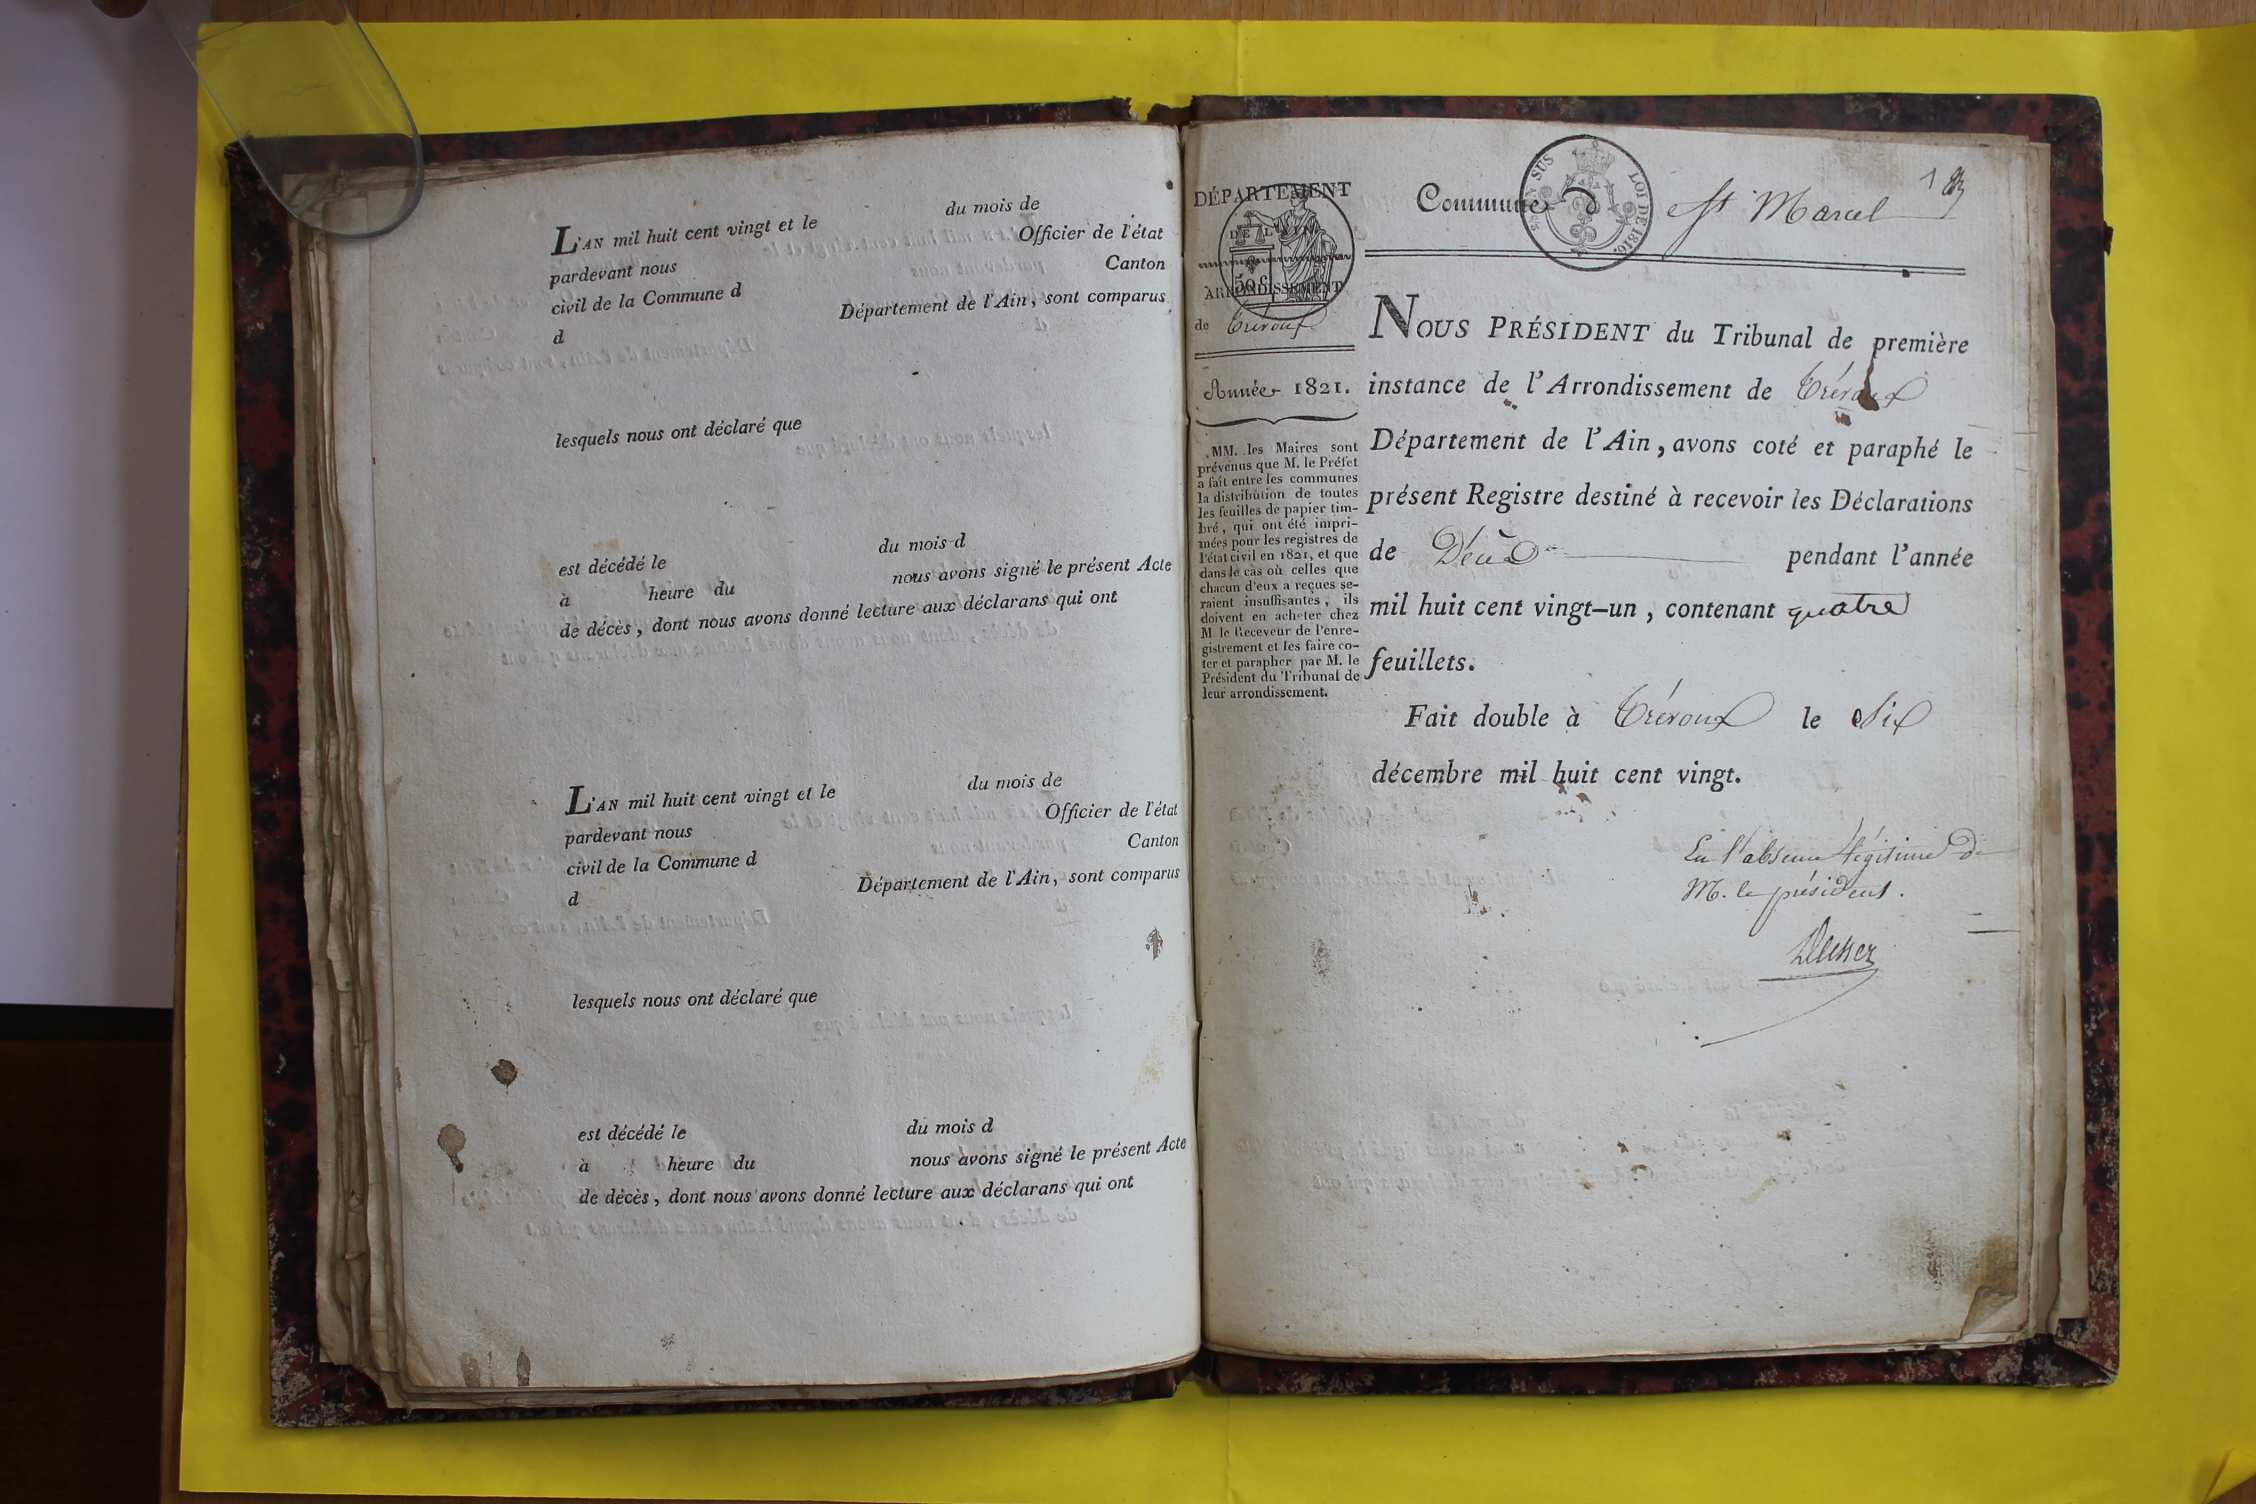 du mois de
L'AN mil huit cent vingt et le
Officier de l'état
pardevant nous
Canton
civil de la Commune d
Département de l'Ain, sont comparus
d
lesquels nous ont déclaré que
du mois d
est décédé le
nous avons signé le présent Acte
à heure du
de décès, dont nous avons donné lecture aux déclarans qui ont
du mois de
L'AN mil huit cent vingt et le
Officier de l'état
pardevant nous
Canton
civil de la Commune d
Département de l'Ain, sont comparus
d
lesquels nous ont déclaré que
du mois d
est décédé le
nous avons signé le présent Acte
à heure du
de décès, dont nous avons donné lecture aux déclarans qui ont
DÉPARTEMENT
DE L'AIN
50 c.
ARRONDISSEMENT
de Trévoux
Année 1821.
MM. les Maires sont
prévenus que M. le Préfet
a fait entre les communes
la distribution de toutes
les feuilles de papier tim-
bré, qui ont été impri-
mées pour les registres de
l'état civil en 1821, et que
dans le cas où celles que
chacun d'eux a reçues se-
raient insuffisantes, ils
doivent en acheter chez
M. le Receveur de l'enre-
gistrement et les faire co-
ter et parapher par M. le
Président du Tribunal de
leur arrondissement.
Commune d St Marcel
1
EN SUS
LOI DE 1816.
NOUS PRÉSIDENT du Tribunal de première
instance de l'Arrondissement de Trévoux
Département de l'Ain, avons coté et paraphé le
présent Registre destiné à recevoir les Déclarations
de pendant l'année
mil huit cent vingt-un, contenant quatre
feuillets.
Fait double à Trévoux le Six
décembre mil huit cent vingt.
En l'absence légitime de
M. le président.